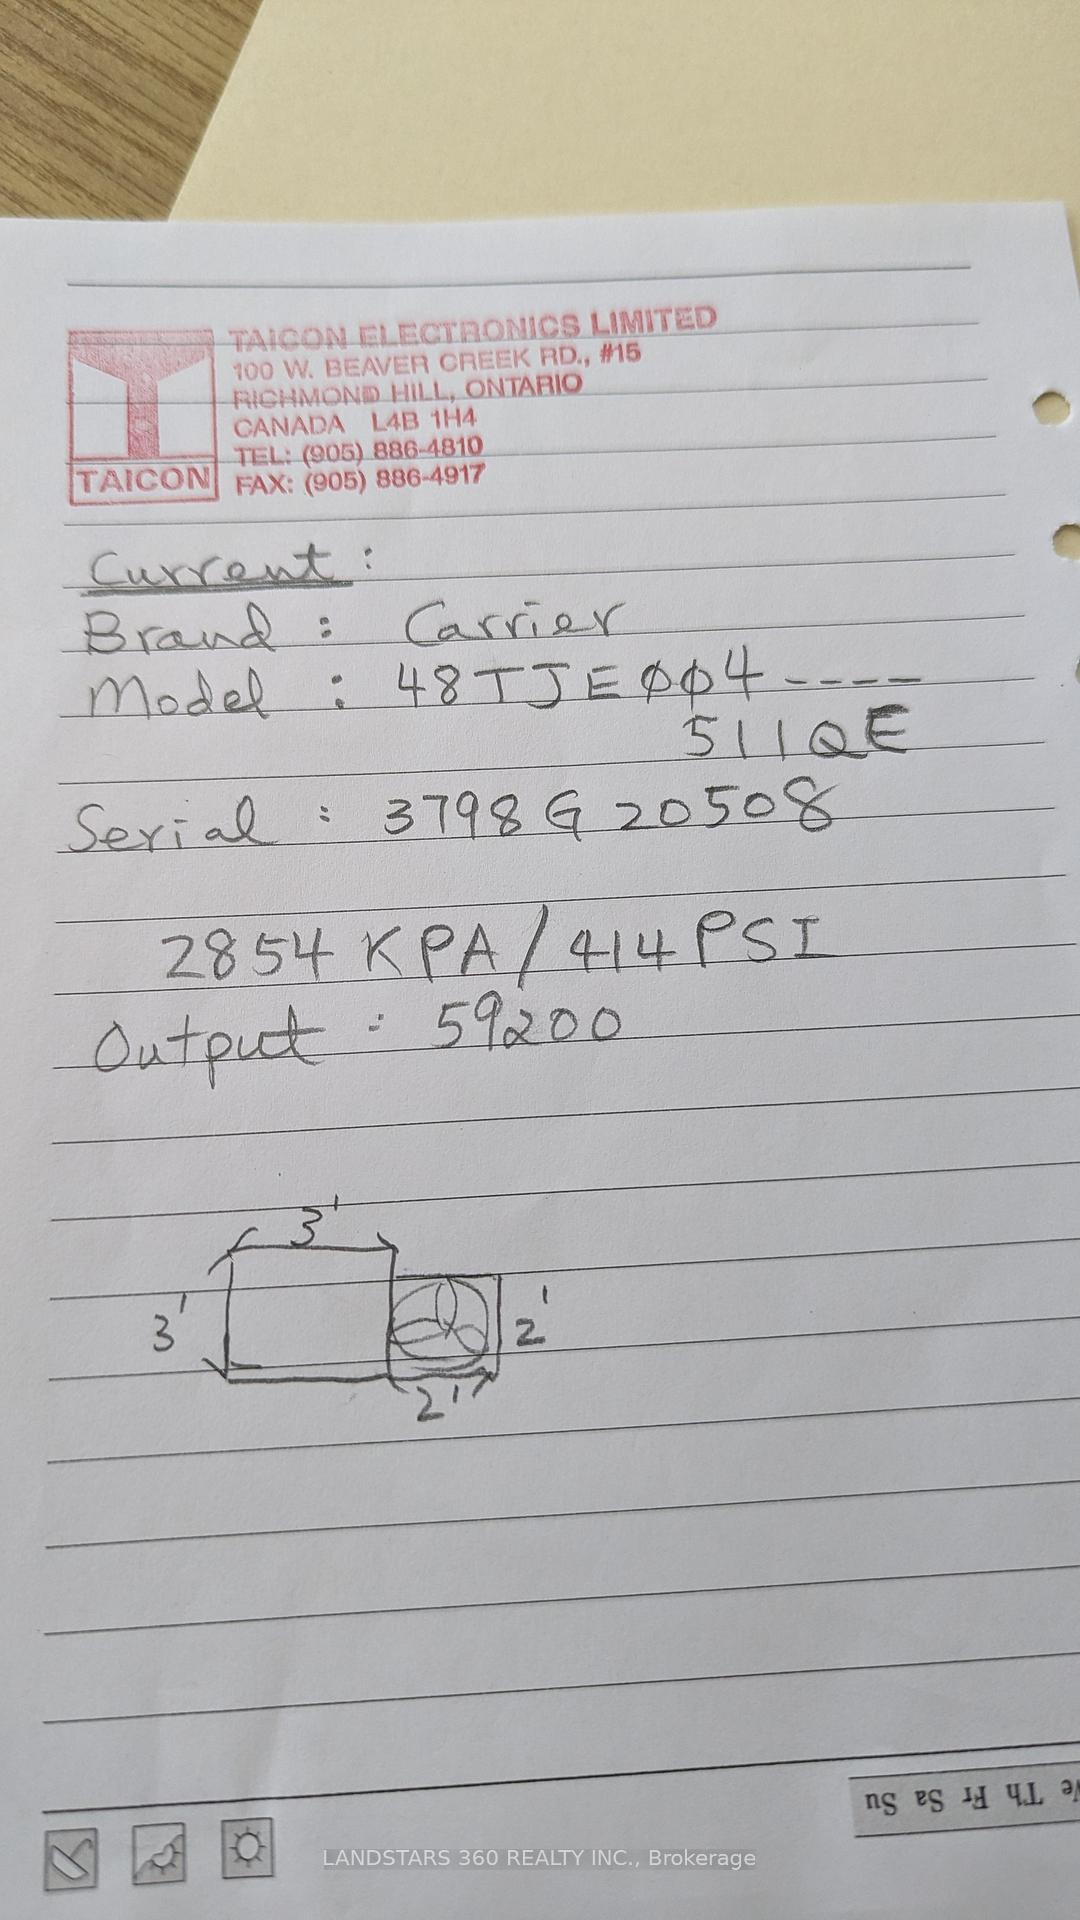 TAICON ELECTRONICS LIMITED
100 W. BEAVER CREEK RD., #15
RICHMOND HILL, ONTARIO
CANADA L4B 1H4
TEL: (905) 886-4810
FAX: (905) 886-4917
TAICON
Current:
Brand : Carrier
Model : 48TJE004----
511QE
Serial : 3798G20508
2854 KPA/414PSI
Output : 59200
3'
3'
2'
2'
Th Fr Sa Su
LANDSTARS 360 REALTY INC., Brokerage